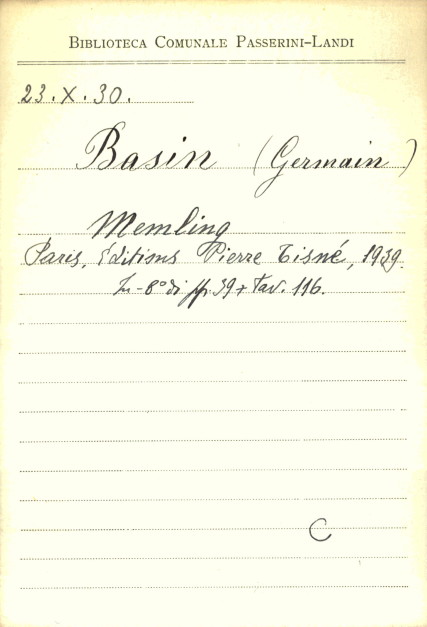 BIBLIOTECA COMUNALE PASSERINI-LANDI
23.X.30.
Basin (Germain)
Memling
Paris, Editions Pierre Tisné, 1939.
In-8° di pp. 39 + Tav. 116.
C